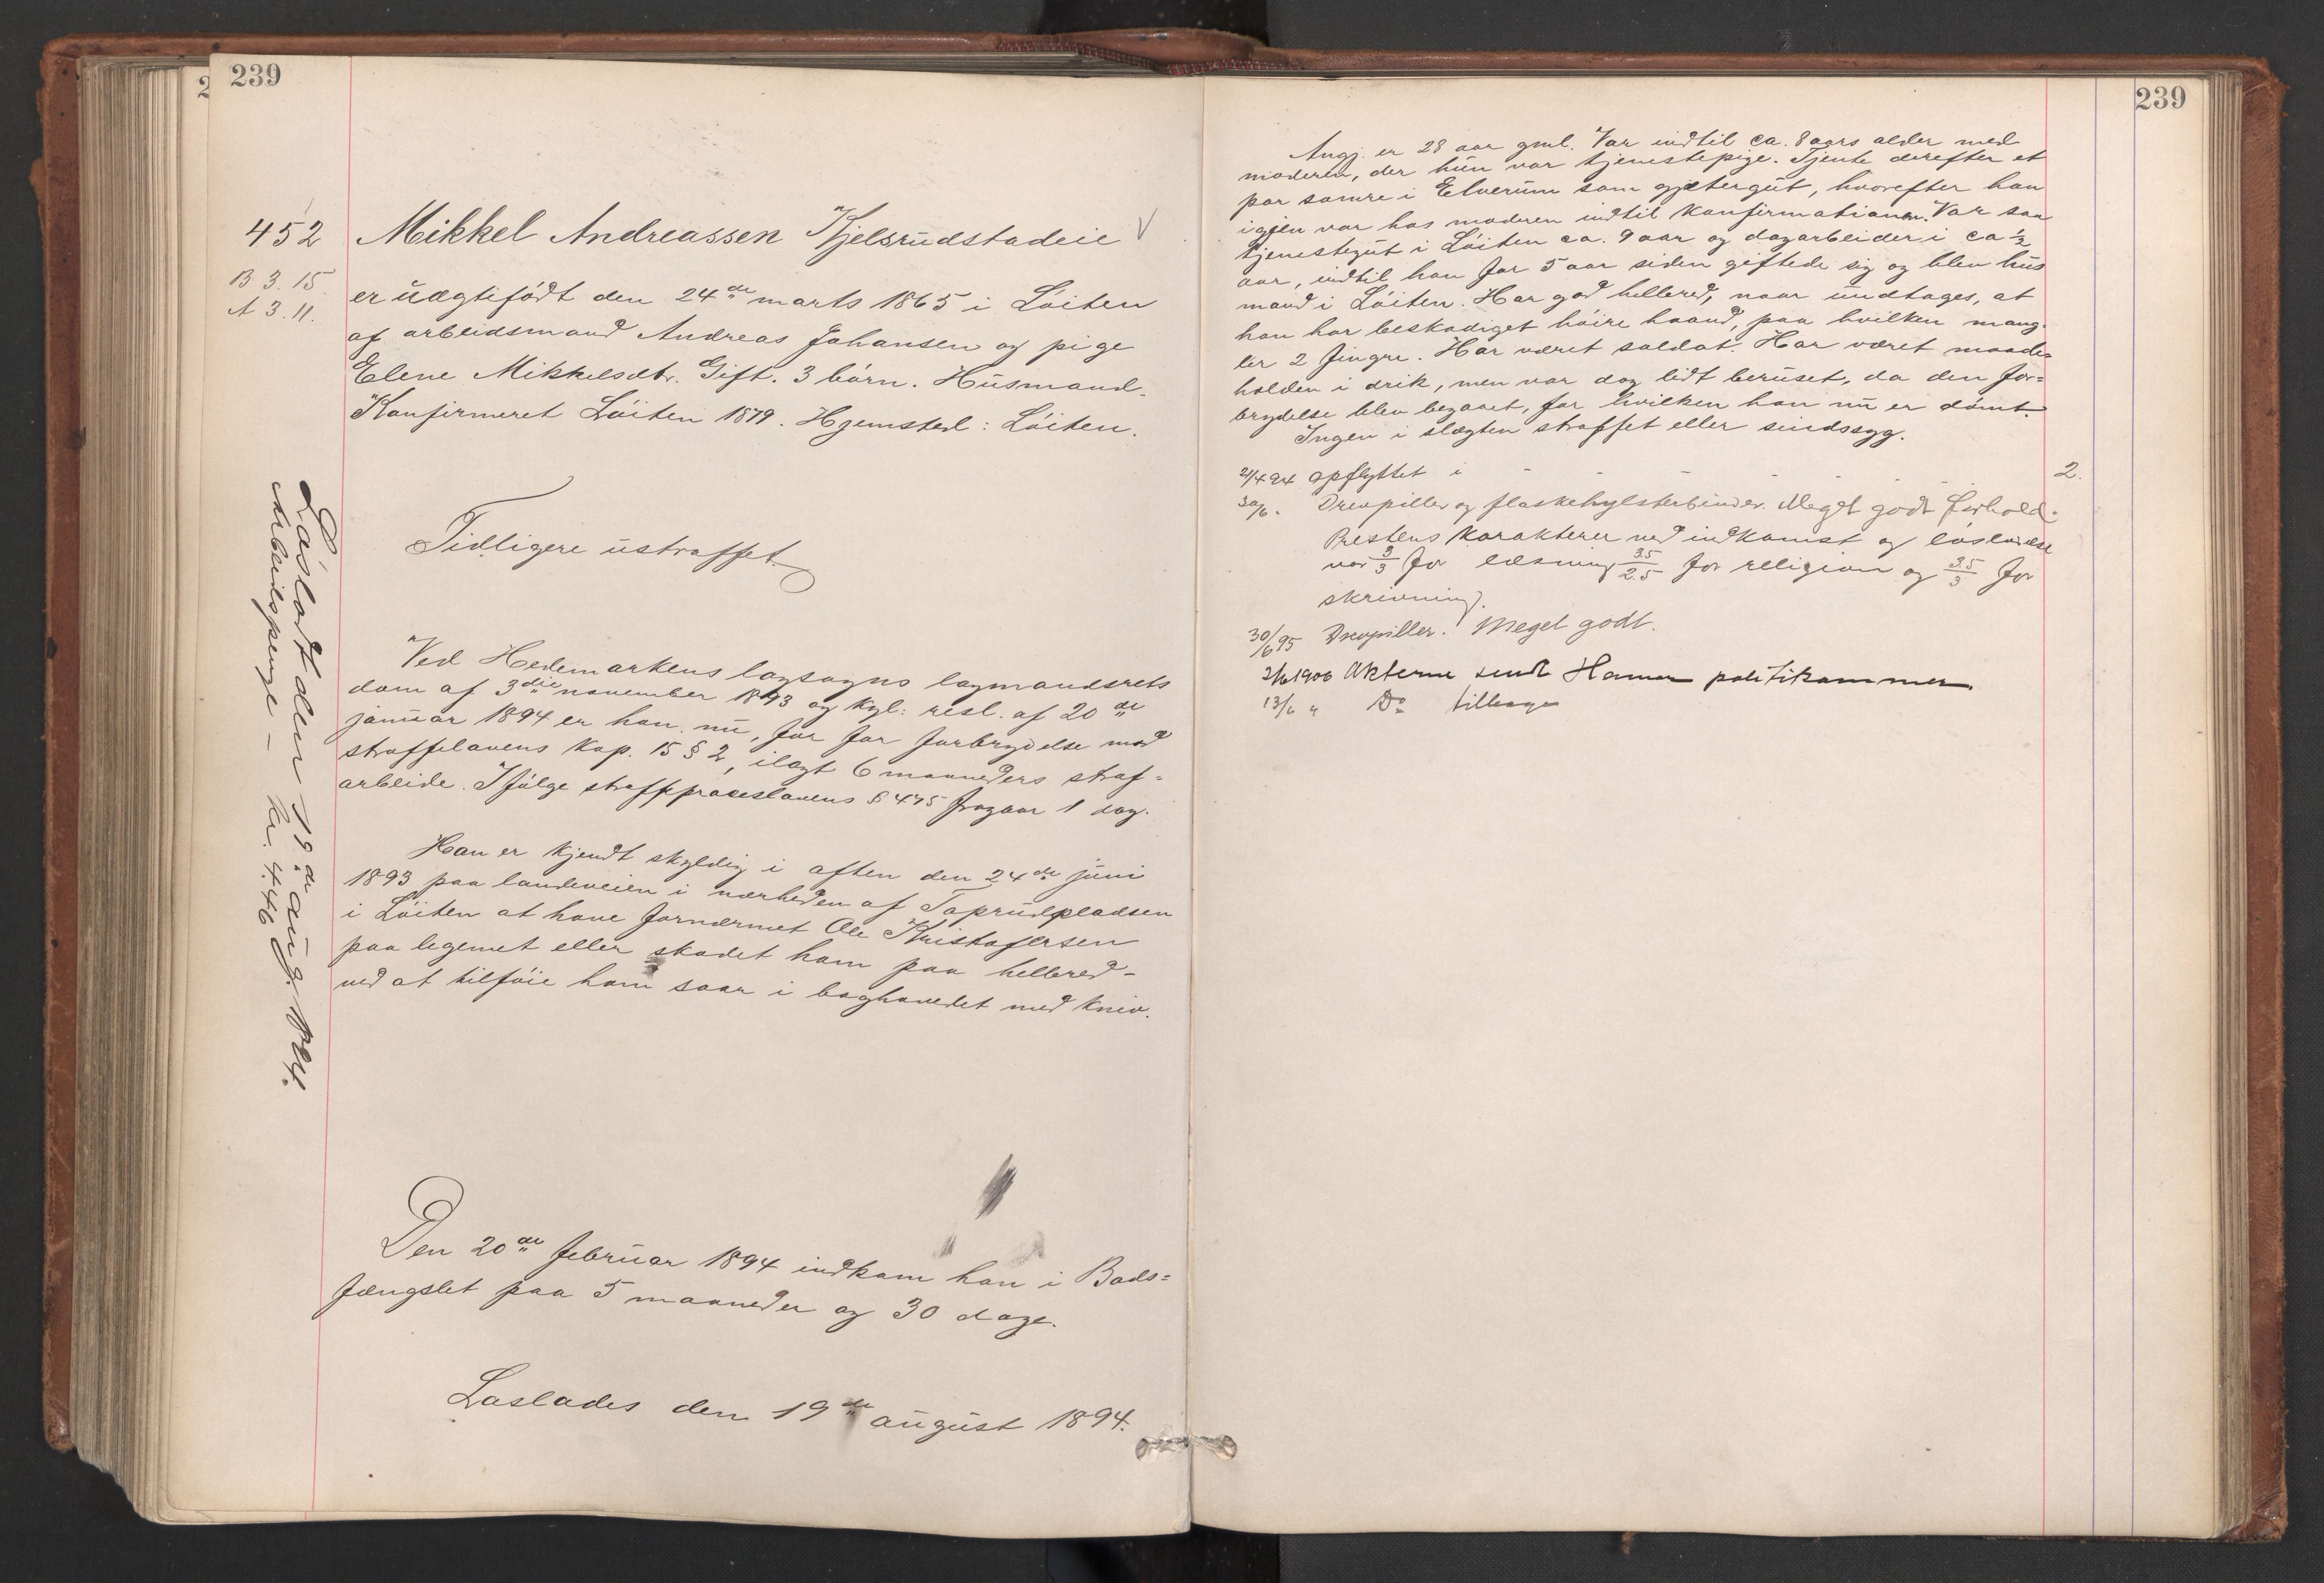 239
452 Mikkel Andreassen Kjelsrudstadeie
B 3. 15.
A 3. 11.
er uægtefödt den 24de marts 1865 i Löiten
af arbeidsmand Andreas Johansen og pige
Elene Mikkelsdtr. Gift. 3 börn. Husmand.
Konfirmeret Löiten 1879. Hjemsted: Löiten.
Tidligere ustraffet.
Ved Hedemarkens lagsogns lagmandsrets
dom af 3die november 1893 og kgl: resl. af 20de
januar 1894 er han nu, for for forbrydelse mod
straffelovens Kap. 15 § 2, ilagt 6 maaneders straf=
arbeide. Ifölge straffproceslovens § 475 fragaar 1 dag.
Han er kjendt skyldig i aften den 24de juni
1893 paa landeveien i nærheden af Taprudpladsen
i Löiten at have fornærmet Ole Kristofersen
paa legemet eller skadet ham paa helbred
ved at tilföie ham saar i baghovedet med kniv.
Den 20de februar 1894 indkom han i Bods=
fængslet paa 5 maaneder og 30 dage.
Löslades den 19de august 1894.
Löslodt den 19de aug. 1894.
Arbeidspenge - kr. 4.46
239
Angj. er 28 aar gml. Var indtil ca. 8 aars alder med
moderen, der hun var tjenestepige. Tjente derefter et
par somre i Elverum som gjætergut, hvorefter han
igjen var hos moderen indtil konfirmationen. Var saa
tjenestegut i Löiten ca. 9 aar og dagarbeider i ca ½
aar, indtil han for 5 aar siden giftede sig og blev hus
mand i Löiten. Har god helbred, naar undtages, at
han har beskadiget höire haand, paa hvilken mang-
ler 2 fingre. Har været soldat. Har været maade=
holden i drik, men var dog lidt beruset, da den for=
brydelse blev begaaet, for hvilken han nu er dömt.
Ingen i slægten straffet eller sindssyg.
21/4 94 opflyttet i - - - - 2.
30/6. Drevpiller og flaskehylsterbinder. Meget godt forhold.
Prestens karakterer ved indkomst og lösladelse
var 3/3 for læsning 3.5/2.5 for religion og 3.5/3 for
skrivning.
30/6 95 Drevpiller. Meget godt.
2/6 1906 Akterne sendt Hamar politikammer.
13/6 " Do tilbage